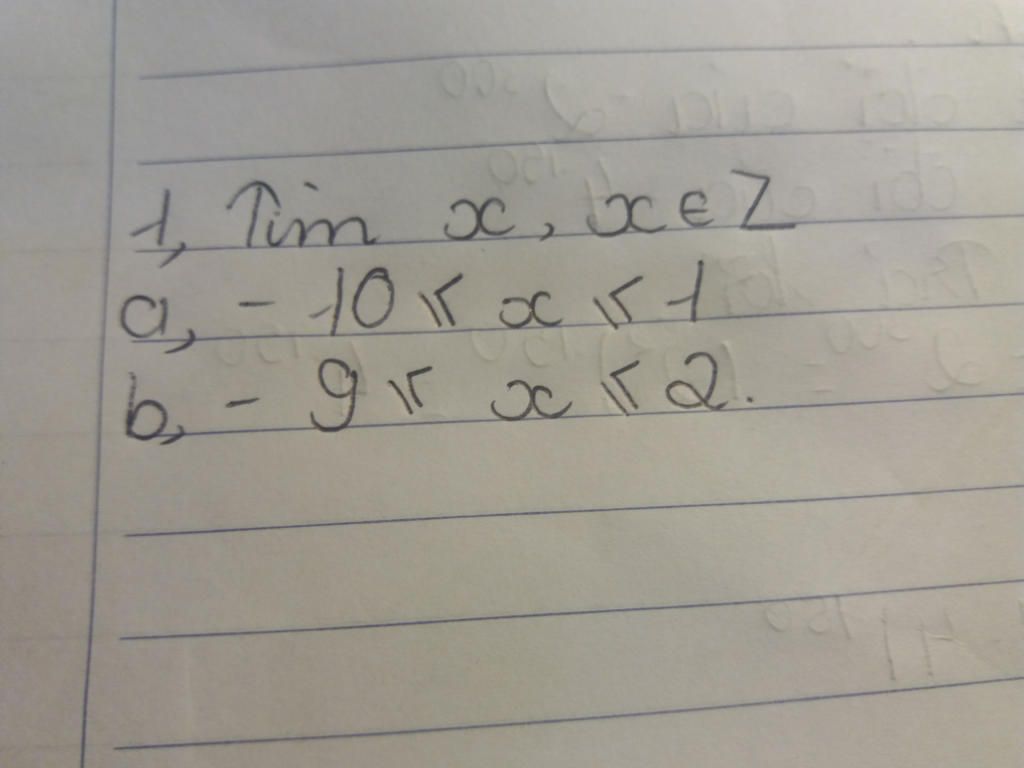 1, Tìm x, x ∈ Z
a, - 10 ≤ x ≤ 1
b, - 9 ≤ x ≤ 2.